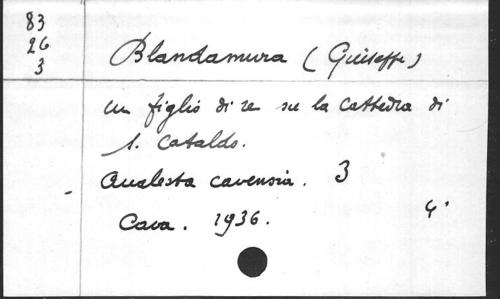 83
26
3
Blandamura (Guiseffe)
un figlio di re su la cattedra di
S. Cataldo.
Analecta cavensia. 3
Cava. 1936. 4°